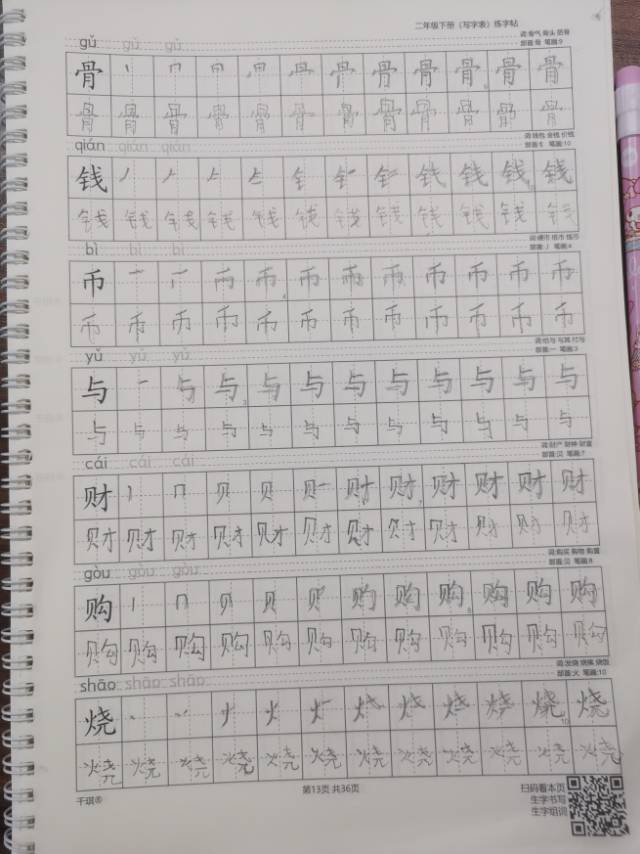 二年级下册（写字表）练字帖
gǔ gǔ gǔ 词:骨气 骨头 筋骨
部首:骨 笔画:9
骨 骨 骨
骨 骨 骨 骨 骨 骨 骨 骨 骨 骨 骨 骨
qián qián qián 词:钱包 金钱 价钱
部首:钅 笔画:10
钱 钱 钱
钱 钱 钱 钱 钱 钱 钱 钱 钱 钱 钱 钱
bì bì bì 词:硬币 纸币 钱币
笔画:4
币 币 币 币 币 币 币 币 币
币 币 币 币 币 币 币 币 币 币 币 币
yǔ yǔ yǔ 词:给与 与其 付与
部首:一 笔画:3
与 一 与 与 与 与 与 与 与 与 与 与
与 与 与 与 与 与 与 与 与 与 与 与
cái cái cái 词:财产 财神 财富
部首:贝 笔画:7
财 财 财 财 财 财 财
财 财 财 财 财 财 财 财 财 财 财 财
gòu gòu gòu 词:购买 购物 购置
部首:贝 笔画:8
购 购 购 购 购 购
购 购 购 购 购 购 购 购 购 购 购 购
shāo shāo shāo 词:发烧 烧烤 烧饭
部首:火 笔画:10
烧 火 烧 烧
烧 烧 烧 烧 烧 烧 烧 烧 烧 烧 烧 烧
千琪®
第13页 共36页
扫码看本页
生字书写
生字组词